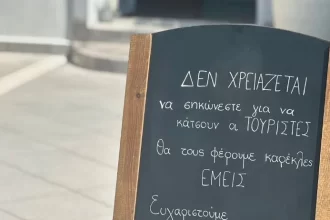 ΔΕΝ ΧΡΕΙΑΖΕΤΑΙ
να σηκώνεστε για να
κάτσουν οι ΤΟΥΡΙΣΤΕΣ
θα τους φέρουμε καρέκλες
ΕΜΕΙΣ
Ευχαριστούμε